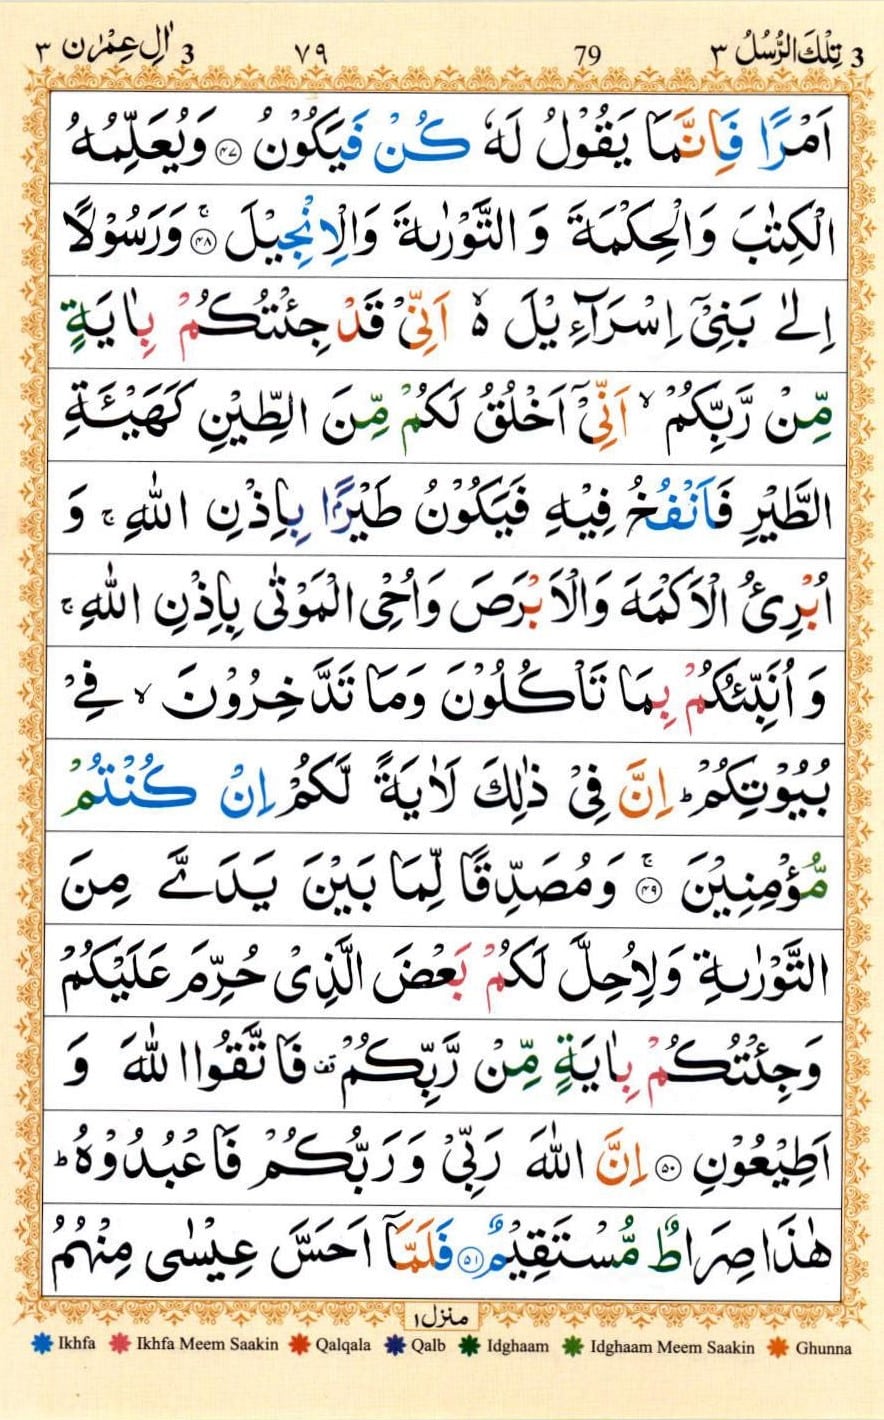 3 تِلْكَ الرُّسُلُ ٣ 79 ٧٩ 3 اٰلِ عِمْرٰن ٣
اَمْرًا فَاِنَّمَا يَقُوْلُ لَهٗ كُنْ فَيَكُوْنُ ﴿۴۷﴾ وَيُعَلِّمُهُ
الْكِتٰبَ وَالْحِكْمَةَ وَ التَّوْرٰىةَ وَالْاِنْجِيْلَ ۚ﴿۴۸﴾ وَرَسُوْلًا
اِلٰى بَنِىْۤ اِسْرَآءِيْلَ ۙ۬ اَنِّىْ قَدْ جِئْتُكُمْ بِاٰيَةٍ
مِّنْ رَّبِّكُمْ ۙ اَنِّىْۤ اَخْلُقُ لَكُمْ مِّنَ الطِّيْنِ كَهَيْـَٔةِ
الطَّيْرِ فَاَنْفُخُ فِيْهِ فَيَكُوْنُ طَيْرًۢا بِاِذْنِ اللّٰهِ ۚ وَ
اُبْرِئُ الْاَكْمَهَ وَالْاَبْرَصَ وَاُحْىِ الْمَوْتٰى بِاِذْنِ اللّٰهِ ۚ
وَ اُنَبِّئُكُمْ بِمَا تَاْكُلُوْنَ وَمَا تَدَّخِرُوْنَ ۙ فِىْ
بُيُوْتِكُمْ ؕ اِنَّ فِىْ ذٰلِكَ لَاٰيَةً لَّكُمْ اِنْ كُنْتُمْ
مُّؤْمِنِيْنَ ۚ﴿۴۹﴾ وَمُصَدِّقًا لِّمَا بَيْنَ يَدَىَّ مِنَ
التَّوْرٰىةِ وَلِاُحِلَّ لَكُمْ بَعْضَ الَّذِىْ حُرِّمَ عَلَيْكُمْ
وَجِئْتُكُمْ بِاٰيَةٍ مِّنْ رَّبِّكُمْ قف فَاتَّقُوا اللّٰهَ وَ
اَطِيْعُوْنِ ﴿۵۰﴾ اِنَّ اللّٰهَ رَبِّىْ وَ رَبُّكُمْ فَاعْبُدُوْهُ ؕ
هٰذَا صِرَاطٌ مُّسْتَقِيْمٌ ﴿۵۱﴾ فَلَمَّاۤ اَحَسَّ عِيْسٰى مِنْهُمُ
منزل ١
Ikhfa Ikhfa Meem Saakin Qalqala Qalb Idghaam Idghaam Meem Saakin Ghunna